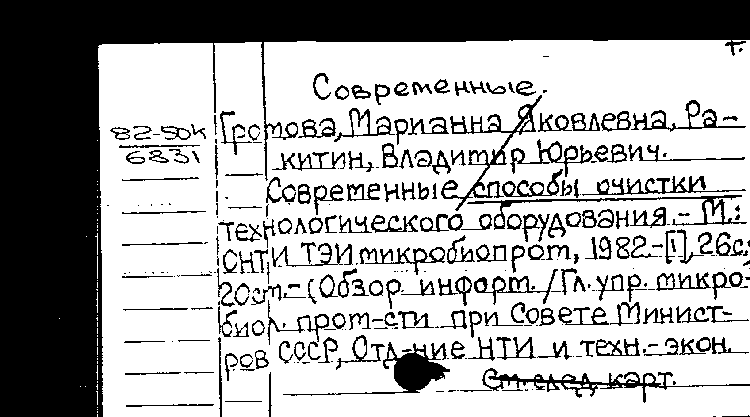 т.
Современные.
82-50к
6831
Громова, Марианна Яковлевна, Ра-
китин, Владимир Юрьевич.
Современные способы очистки
технологического оборудования.- М.:
ОНТИ ТЭИмикробиопром, 1982-[1], 26с.;
20см.-(Обзор информ. /Гл. упр. микро-
биол. пром-сти при Совете Минист-
ров СССР, Отд-ние НТИ и техн.-экон.
См. след. карт.